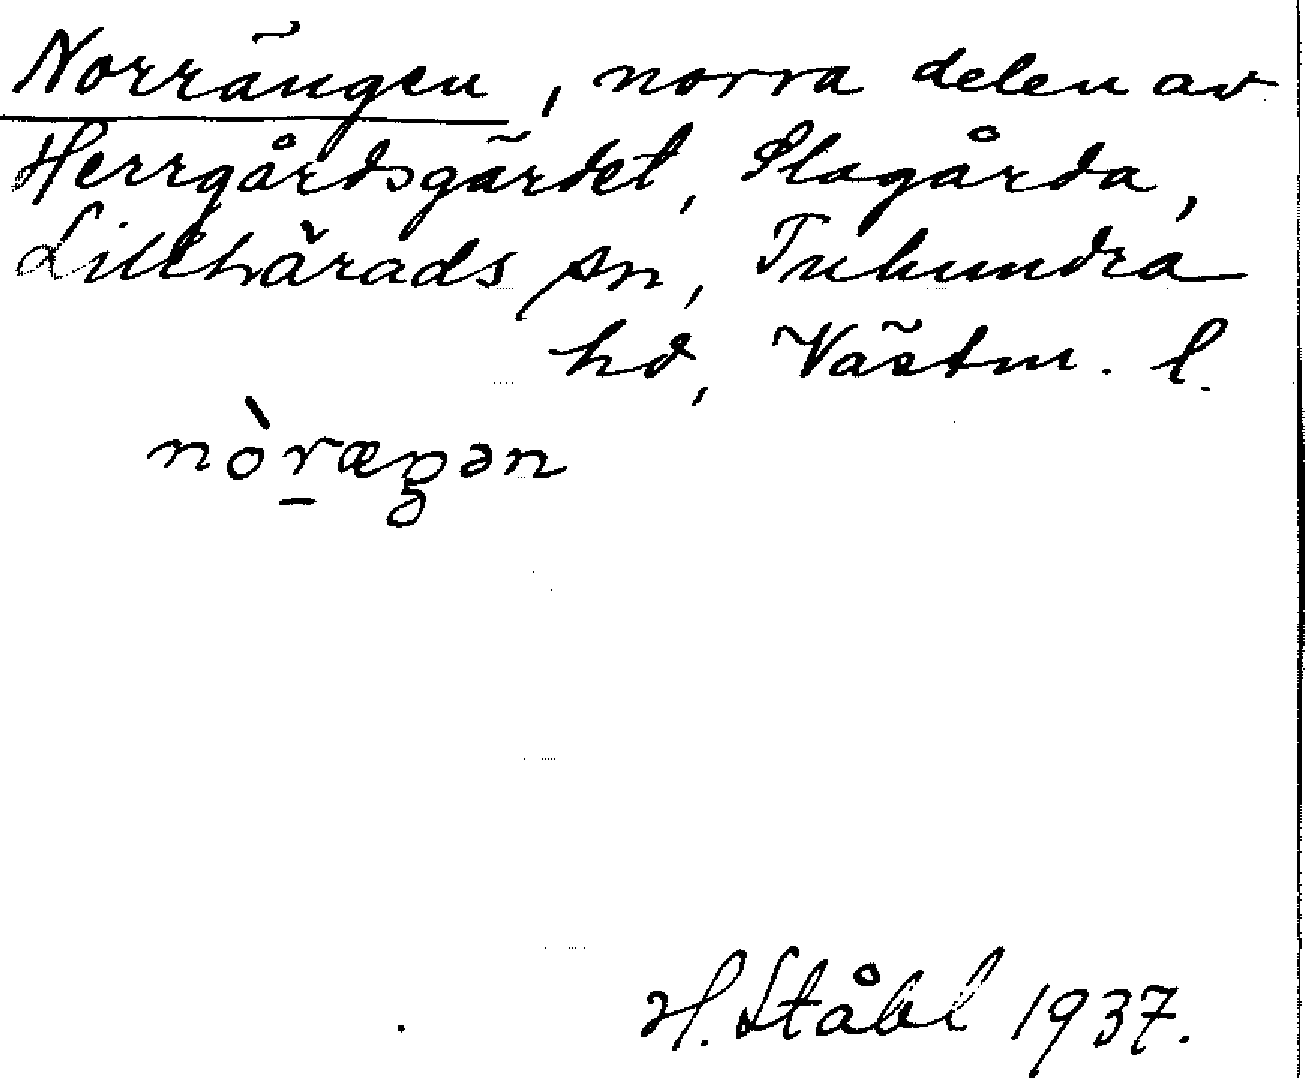 Norrängen, norra delen av
Herrgårdsgärdet, Slagårda,
Lillhärads sn, Tuhundra
hd, Västm. l.
nòr̲æŋən
H. Ståhl 1937.